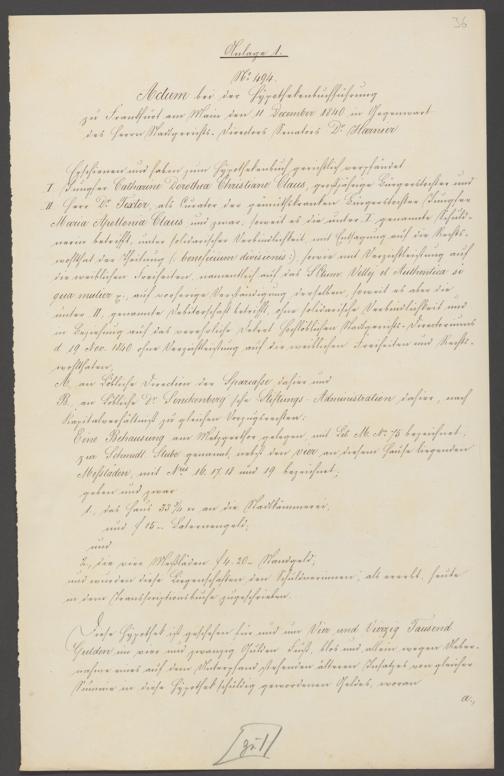 36
Anlage 1.
No 494.
Actum bei der Hypothekenbuchführung
zu Frankfurt am Main den 11 December 1840 in Gegenwart
des Herrn Stadtgerichts-Directors Senators Dr Harnier
Erschienen und haben zum Hypothekenbuch gerichtlich verpfändet
I. Jungfer Catharine Dorothea Christiane Claus, großjährige Bürgerstochter und
II. Herr Dr Textor, als Curator der gemüthskranken Bürgerstochter Jungfer
Maria Apollonia Claus und zwar, soweit es die unter I. genannte Schuld-
nerin betrifft, unter solidarischer Verbindlichkeit, mit Entsagung auf die Rechts-
wohlthat der Theilung (: beneficium divisionis:), sowie mit Verzichtleistung auf
die weiblichen Freiheiten, namentlich auf das SCtum. Vellej. et Authentica si
qua mulier p., auf vorherige Verständigung derselben, soweit es aber die
unter II. genannte Debitorschaft betrifft, ohne solidarische Verbindlichkeit und
in Beziehung auf das verehrliche Decret Hochlöblichen Stadtgerichts-Directoriums
d. 19 Nov. 1840 ohne Verzichtleistung auf die weiblichen Freiheiten und Rechts-
wohlthaten,
A. an Löbliche Direction der Sparcasse dahier und
B. an Löbliche Dr Senckenberg'sche Stiftungs-Administration dahier, nach
Kapitalverhältniß zu gleichen Vorzugsrechten:
Eine Behausung am Metzgerthor gelegen, mit Lit. M. No 75 bezeichnet,
zur Schmidt Stube genannt, nebst den vier an diesem Hause liegenden
Meßläden, mit Nris 16. 17. 18 und 19 bezeichnet;
geben und zwar
1., das Haus 33 3/4 an die Stadtkämmerei,
und f 15 – Laternengeld;
und
2., die vier Meßläden f 4. 20 – Standgeld;
und wurden diese Liegenschaften den Schuldnerinnen, als ererbt, heute
in dem Transscriptionsbuche zugeschrieben.
Diese Hypothek ist geschehen für und um Vier und Vierzig Tausend
Gulden im vier und zwanzig Gulden Fuß, blos und allein wegen Ueber-
nahme eines auf dem Unterpfand stehenden älteren Insatzes von gleicher
Summe in diese Hypothek schuldig gewordenen Geldes, woran
a.,